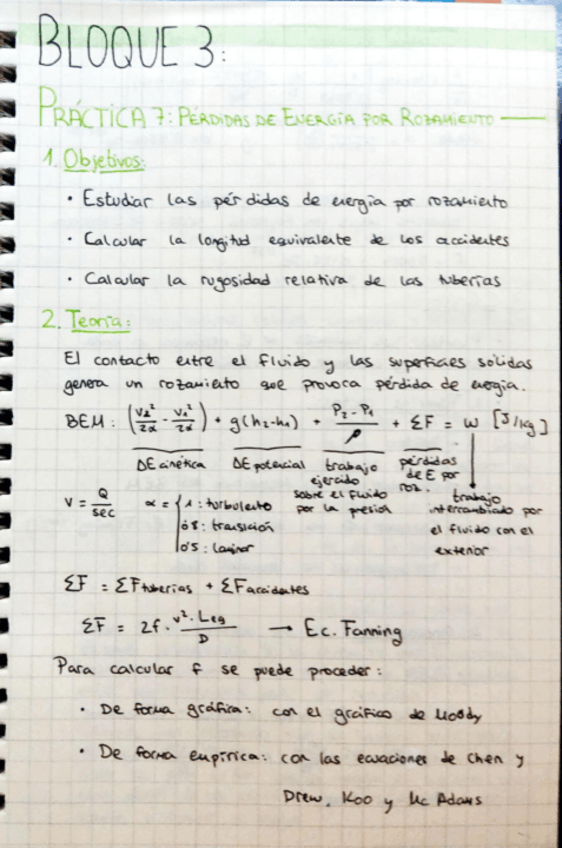 BLOQUE 3:
PRÁCTICA 7: PÉRDIDAS DE ENERGÍA POR ROZAMIENTO
1. Objetivos:
· Estudiar las pérdidas de energía por rozamiento
· Calcular la longitud equivalente de los accidentes
· Calcular la rugosidad relativa de las tuberías
2. Teoría:
El contacto entre el fluido y las superficies sólidas
genera un rozamiento que provoca pérdida de energía.
BEM: (V₂²/2α - V₁²/2α) + g(h₂-h₁) + (P₂-P₁)/ρ + ΣF = W [J/kg]
ΔE cinética ΔE potencial trabajo ejercido sobre el fluido por la presión pérdidas de E por roz. trabajo intercambiado por el fluido con el exterior
V = Q/sec α = { 1: turbulento
0'8: transición
0'5: laminar
ΣF = ΣF tuberías + ΣF accidentes
ΣF = 2f · v² · Leq / D → Ec. Fanning
Para calcular f se puede proceder:
· De forma gráfica: con el gráfico de Moody
· De forma empírica: con las ecuaciones de Chen y
Drew, Koo y Mc Adams